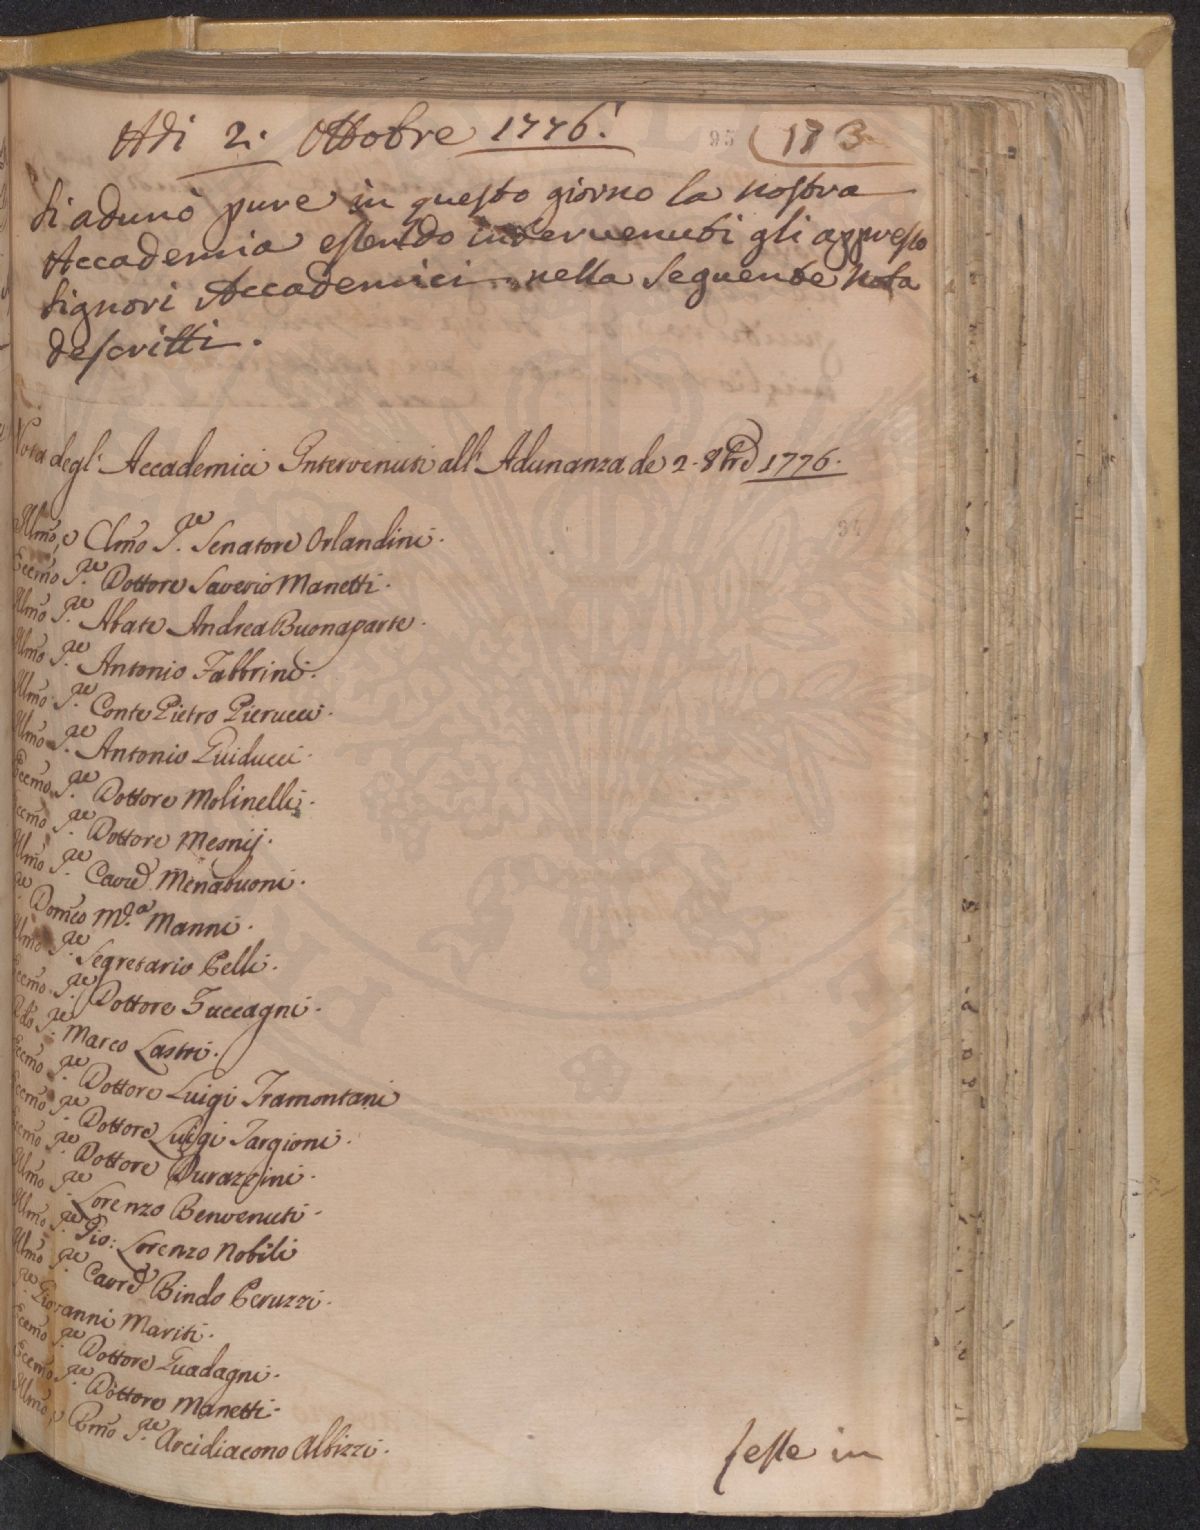 Adi 2. Ottobre 1776.
95 173
Si adunò pure in questo giorno la nostra
Accademia essendo intervenuti gli appresso
Signori Accademici nella seguente Nota
descritti.
Nota degl' Accademici Intervenuti all' Adunanza de 2. 8bre 1776.
94
Illmo, e Clmo Sre. Senatore Orlandini.
Eccmo Sre. Dottore Saverio Manetti.
Illmo Sre. Abate Andrea Buonaparte.
Illmo Sre. Antonio Fabbrini.
Illmo Sre. Conte Pietro Pierucci.
Illmo Sre. Antonio Guiducci.
Eccmo Sre. Dottore Molinelli.
Eccmo Sre. Dottore Mesnij.
Illmo Sre. Cavre Menabuoni.
Sre. Domco Ma. Manni.
Illmo Sre. Segretario Pelli.
Eccmo Sre. Dottore Zuccagni.
Rdo Sre. Marco Lastri.
Eccmo Sre. Dottore Luigi Tramontani
Eccmo Sre. Dottore Luigi Targioni.
Eccmo Sre. Dottore Durazzini.
Illmo Sre. Lorenzo Benvenuti.
Illmo Sre. Gio: Lorenzo Nobili
Illmo Sre. Cavre Bindo Peruzzi.
Sre. Giovanni Mariti.
Eccmo Sre. Dottore Guadagni.
Eccmo Sre. Dottore Manetti.
Illmo, e Rmo Sre. Arcidiacono Albizzi.
Lesse in